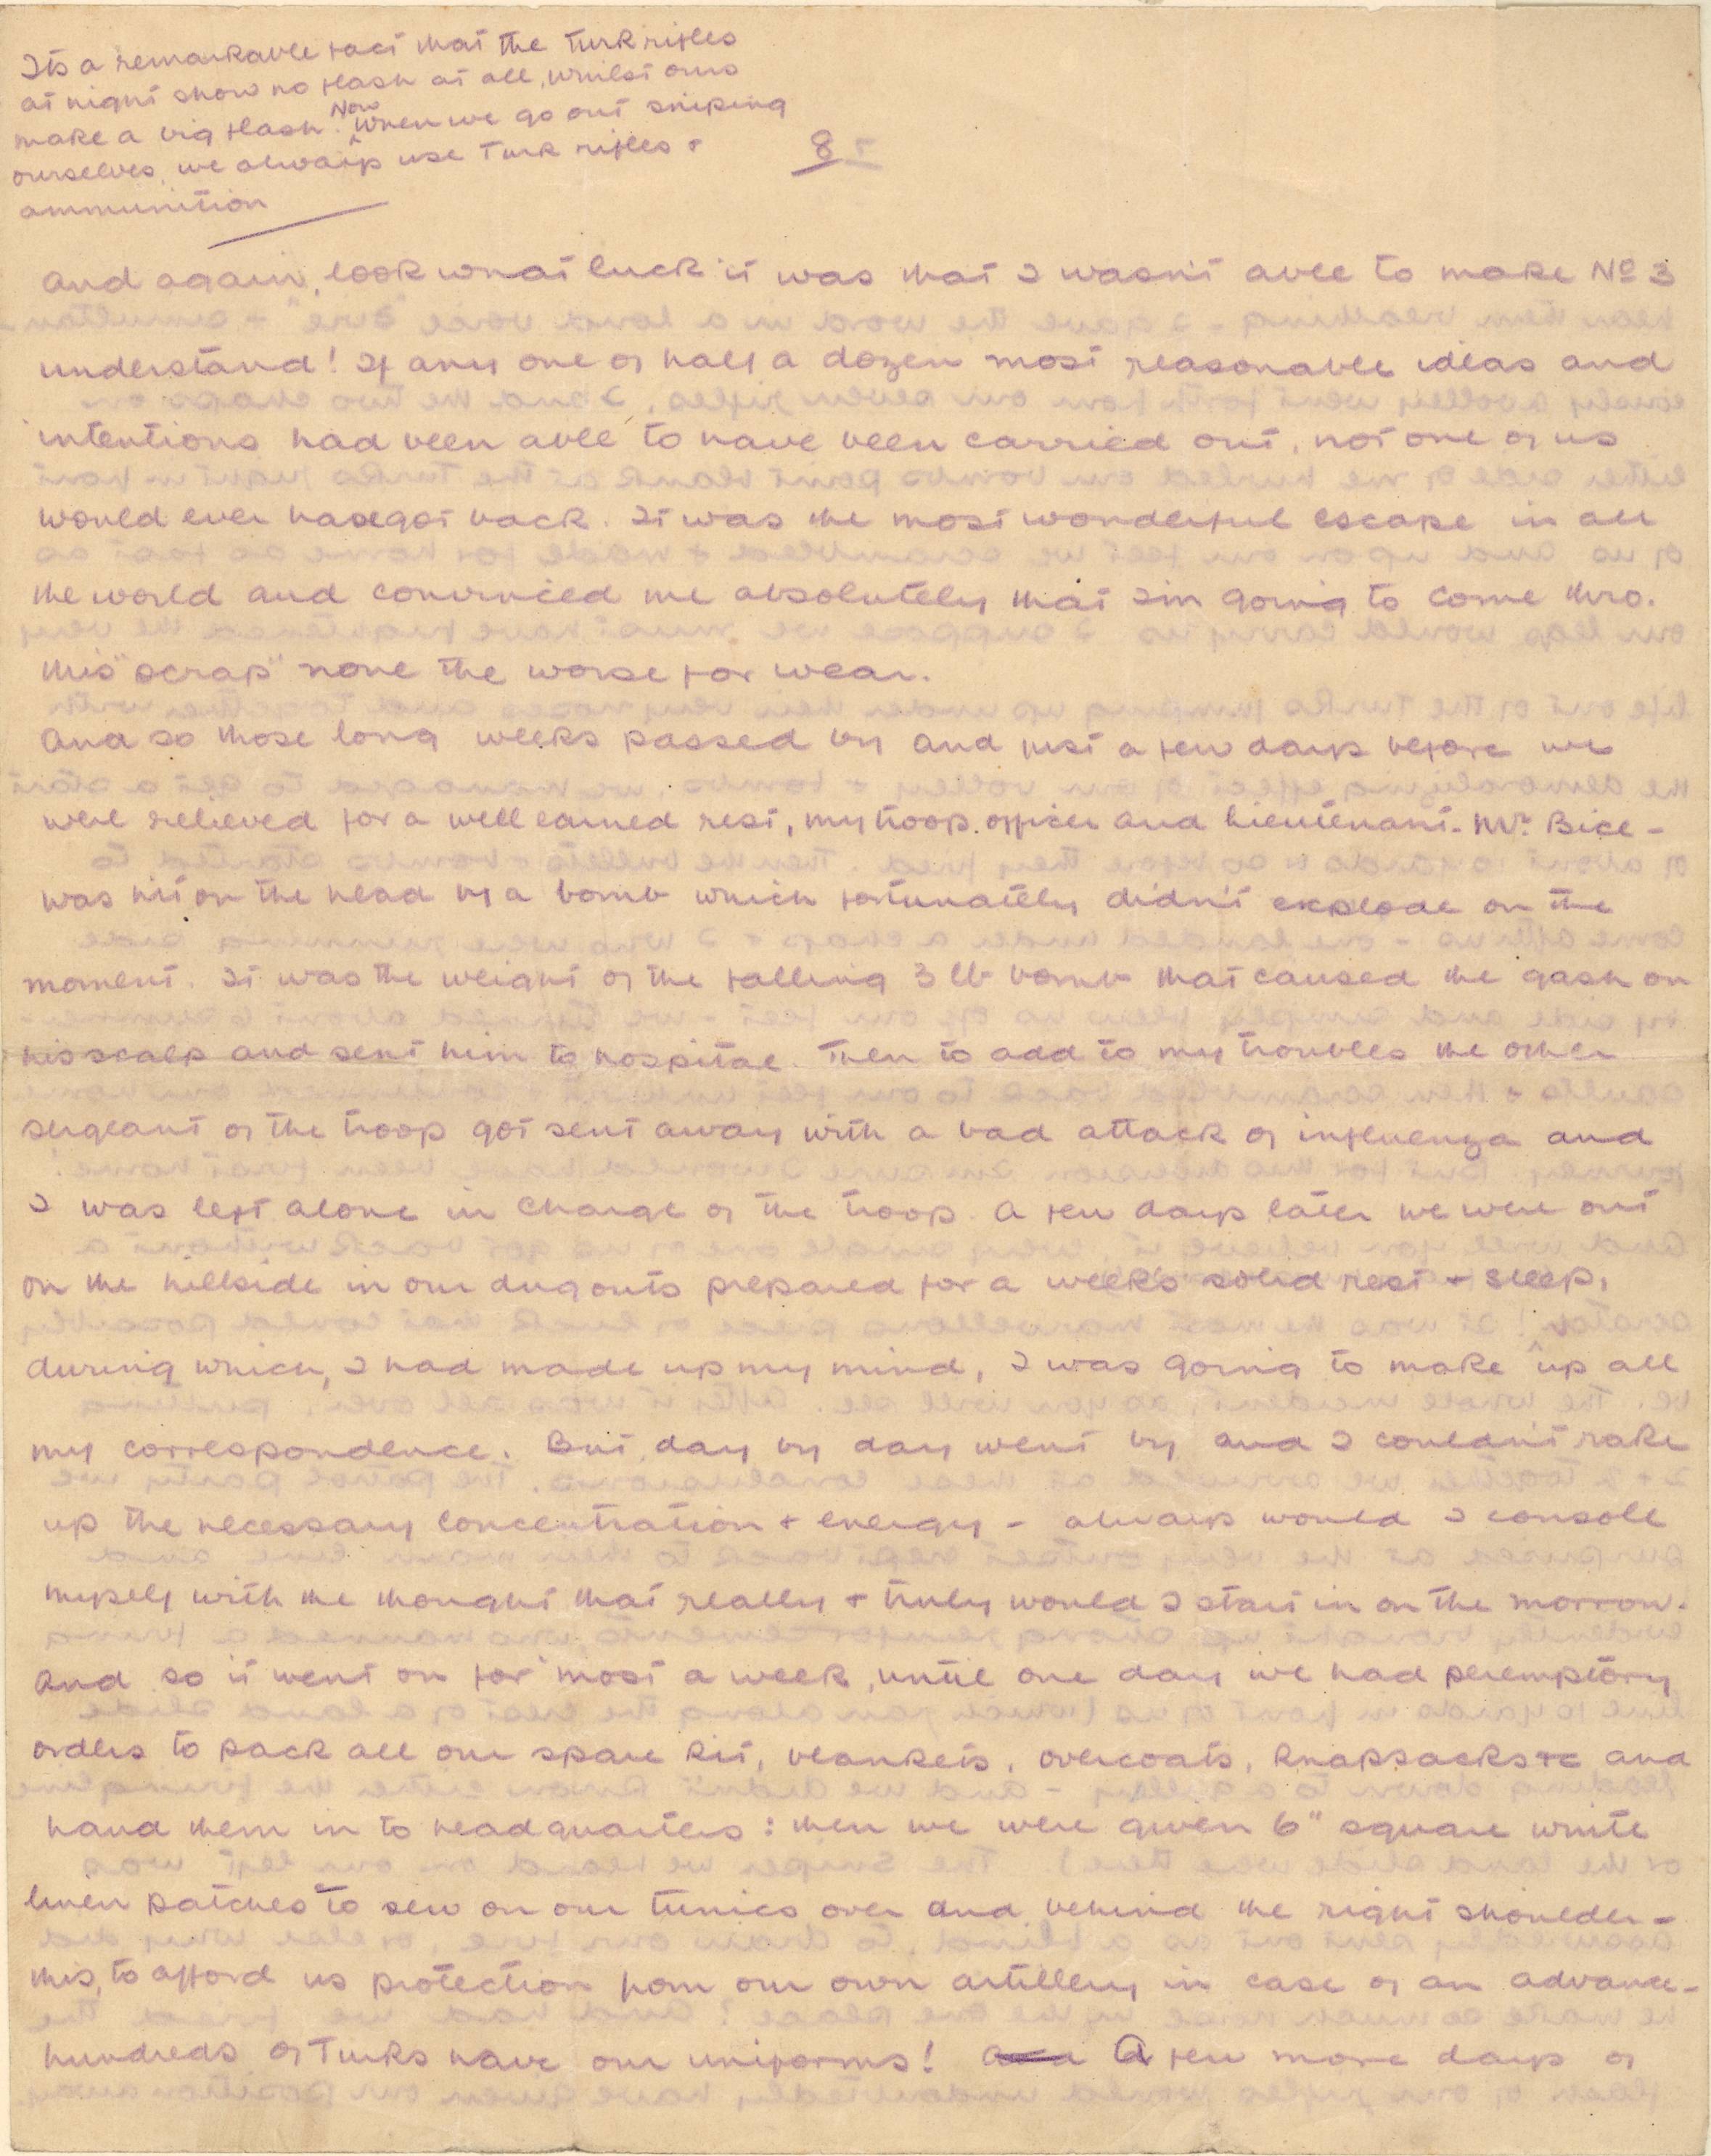 Its a remarkable fact that the Turk rifles
at night show no flash at all, whilst ours
make a big flash. Now when we go out sniping
ourselves, we always use Turk rifles +
ammunition
8
And again, look what luck it was that I wasn't able to make No 3
understand! If any one of half a dozen most reasonable ideas and
intentions had been able to have been carried out, not one of us
would ever have got back. It was the most wonderful escape in all
the world and convinced me absolutely that I'm going to come thro.
this "scrap" none the worse for wear.
And so those long weeks passed by and just a few days before we
were relieved for a well earned rest, my troop officer and Lieutenant - Mr. Bice -
was hit on the head by a bomb which fortunately didn't explode on the
moment. It was the weight of the falling 3 lb bomb that caused the gash on
his scalp and sent him to hospital. Then to add to my troubles the other
sergeant of the troop got sent away with a bad attack of influenza and
I was left alone in charge of the troop. A few days later we were out
on the hillside in our dugouts prepared for a week's solid rest + sleep,
during which, I had made up my mind, I was going to make up all
my correspondence. But day by day went by and I couldn't rake
up the necessary concentration + energy - always would I console
myself with the thought that really + truly would I start in on the morrow.
And so it went on for 'most a week, until one day we had peremptory
orders to pack all our spare kit, blankets, overcoats, knapsacks &c and
hand them in to headquarters: then we were given 6" square white
linen patches to sew on our tunics over and behind the right shoulder -
this, to afford us protection from our own artillery in case of an advance -
hundreds of Turks have our uniforms! A few more days of